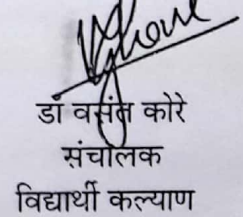 डॉ वसंत कोरे
संचालक
विद्यार्थी कल्याण